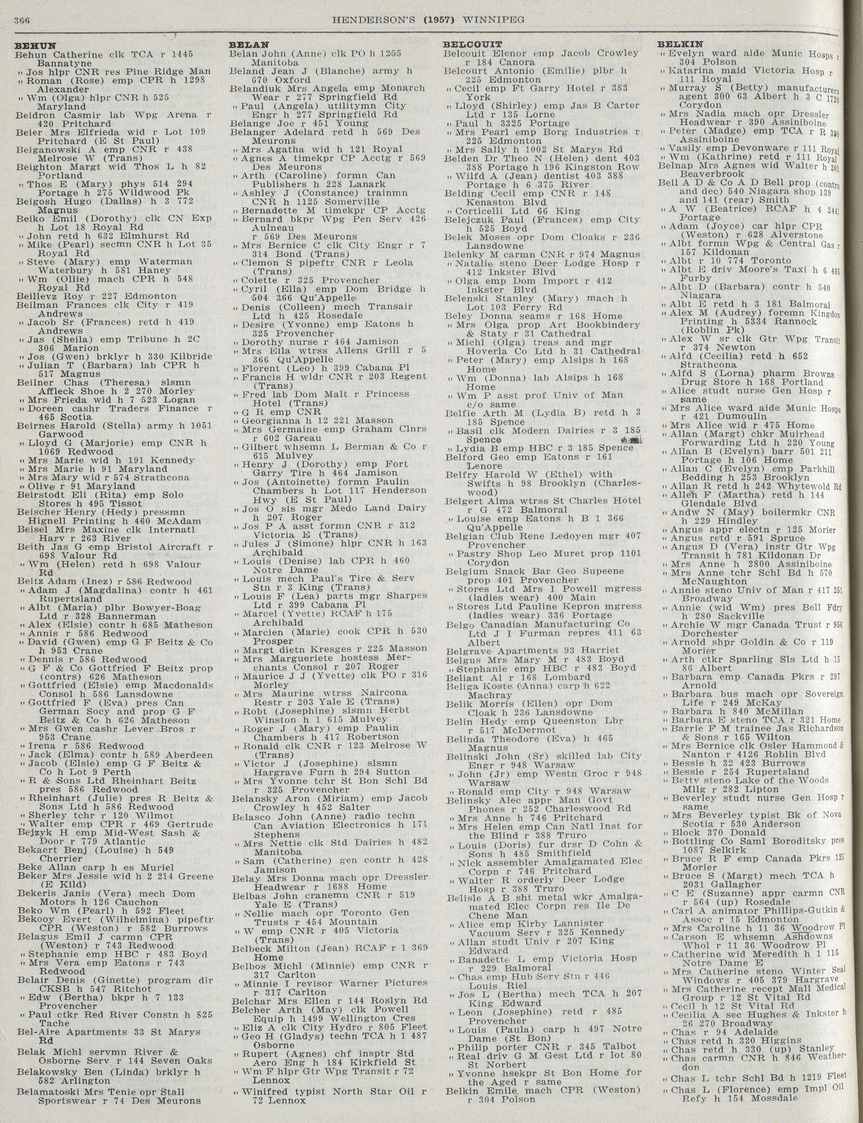 366
HENDERSON'S (1957) WINNIPEG
BEHUN
Behun Catherine clk TCA r 1445
Bannatyne
" Jos hlpr CNR res Pine Ridge Man
" Roman (Rose) emp CPR h 1298
Alexander
" Wm (Olga) hlpr CNR h 525
Maryland
Beidron Casmir lab Wpg Arena r
420 Pritchard
Beier Mrs Elfrieda wid r Lot 109
Pritchard (E St Paul)
Beiganowski A emp CNR r 438
Melrose W (Trans)
Beighton Margt wid Thos L h 82
Portland
" Thos E (Mary) phys 514 294
Portage h 275 Wildwood Pk
Beigosh Hugo (Dallas) h 3 772
Magnus
Beiko Emil (Dorothy) clk CN Exp
h Lot 18 Royal Rd
" John retd h 632 Elmhurst Rd
" Mike (Pearl) secmn CNR h Lot 35
Royal Rd
" Steve (Mary) emp Waterman
Waterbury h 581 Haney
" Wm (Ollie) mach CPR h 548
Royal Rd
Beillevz Roy r 227 Edmonton
Beilman Frances clk City r 419
Andrews
" Jacob Sr (Frances) retd h 419
Andrews
" Jas (Sheila) emp Tribune h 2C
306 Marion
" Jos (Gwen) brklyr h 330 Kilbride
" Julian T (Barbara) lab CPR h
517 Magnus
Beilner Chas (Theresa) slsmn
Affleck Shoe h 2 270 Morley
" Mrs Frieda wid h 7 523 Logan
" Doreen cashr Traders Finance r
465 Scotia
Beirnes Harold (Stella) army h 1051
Garwood
" Lloyd G (Marjorie) emp CNR h
1069 Redwood
" Mrs Marie wid h 191 Kennedy
" Mrs Marie h 91 Maryland
" Mrs Mary wid r 574 Strathcona
" Olive r 91 Maryland
Beirstodt Ell (Rita) emp Solo
Stores h 495 Tissot
Beischer Henry (Hedy) pressmn
Hignell Printing h 460 McAdam
Beisel Mrs Maxine clk Internatl
Harv r 263 River
Beith Jas G emp Bristol Aircraft r
698 Valour Rd
" Wm (Helen) retd h 698 Valour
Rd
Beitz Adam (Inez) r 586 Redwood
" Adam J (Magdalina) contr h 461
Rupertsland
" Albt (Maria) plbr Bowyer-Boag
Ltd r 328 Bannerman
" Alex (Elsie) contr h 685 Matheson
" Annis r 586 Redwood
" David (Gwen) emp G F Beitz & Co
h 953 Crane
" Dennis r 586 Redwood
" G F & Co Gottfried F Beitz prop
(contrs) 626 Matheson
" Gottfried (Elsie) emp Macdonalds
Consol h 586 Lansdowne
" Gottfried F (Eva) pres Can
German Socy and prop G F
Beitz & Co h 626 Matheson
" Mrs Gwen cashr Lever Bros r
953 Crane
" Irena r 586 Redwood
" Jack (Elma) contr h 589 Aberdeen
" Jacob (Elsie) emp G F Beitz &
Co h Lot 9 Perth
" R & Sons Ltd Rheinhart Beitz
pres 586 Redwood
" Rheinhart (Julie) pres R Beitz &
Sons Ltd h 586 Redwood
" Sherley tchr r 120 Wilmot
" Walter emp CPR r 469 Gertrude
Bejzyk H emp Mid-West Sash &
Door r 779 Atlantic
Bekaert Benj (Louise) h 549
Cherrier
Beke Allan carp h es Muriel
Beker Mrs Jessie wid h 2 214 Greene
(E Kild)
Bekeris Janis (Vera) mech Dom
Motors h 126 Cauchon
Beko Wm (Pearl) h 592 Fleet
Bekooy Evert (Wilhelmina) pipeftr
CPR (Weston) r 582 Burrows
Belagus Emil J carmn CPR
(Weston) r 743 Redwood
" Stephanie emp HBC r 483 Boyd
" Mrs Vera emp Eatons r 743
Redwood
Belair Denis (Ginette) program dir
CKSB h 547 Ritchot
" Edw (Bertha) bkpr h 7 133
Provencher
" Paul ctkr Red River Constn h 825
Tache
Bel-Aire Apartments 33 St Marys
Rd
Belak Michl servmn River &
Osborne Serv r 144 Seven Oaks
Belakowsky Ben (Linda) brklyr h
582 Arlington
Belamatoski Mrs Tenie opr Stall
Sportswear r 74 Des Meurons
BELAN
Belan John (Anne) clk PO h 1255
Manitoba
Beland Jean J (Blanche) army h
670 Oxford
Belandiuk Mrs Angela emp Monarch
Wear r 277 Springfield Rd
" Paul (Angela) utilitymn City
Engr h 277 Springfield Rd
Belange Joe r 451 Young
Belanger Adelard retd h 569 Des
Meurons
" Mrs Agatha wid h 121 Royal
" Agnes A timekpr CP Acctg r 569
Des Meurons
" Arth (Caroline) formn Can
Publishers h 228 Lanark
" Ashley J (Constance) trainmn
CNR h 1125 Somerville
" Bernadette M timekpr CP Acctg
" Bernard bkpr Wpg Pen Serv 426
Aulneau
r 569 Des Meurons
" Mrs Bernice C clk City Engr r 7
314 Bond (Trans)
" Clemon S pipeftr CNR r Leola
(Trans)
" Colette r 325 Provencher
" Cyril (Ella) emp Dom Bridge h
504 366 Qu'Appelle
" Denis (Colleen) mech Transair
Ltd h 425 Rosedale
" Desire (Yvonne) emp Eatons h
325 Provencher
" Dorothy nurse r 464 Jamison
" Mrs Ella wtrss Allens Grill r 5
366 Qu'Appelle
" Florent (Leo) h 399 Cabana Pl
" Francis H wldr CNR r 203 Regent
(Trans)
" Fred lab Dom Malt r Princess
Hotel (Trans)
" G R emp CNR
" Georgianna h 12 221 Masson
" Mrs Germaine emp Graham Clnrs
r 602 Gareau
" Gilbert whsemn L Berman & Co r
615 Mulvey
" Henry J (Dorothy) emp Fort
Garry Tire h 464 Jamison
" Jos (Antoinette) formn Paulin
Chambers h Lot 117 Henderson
Hwy (E St Paul)
" Jos O sis mgr Medo Land Dairy
h 207 Roger
" Jos P A asst formn CNR r 312
Victoria E (Trans)
" Jules J (Simone) hlpr CNR h 163
Archibald
" Louis (Denise) lab CPR h 460
Notre Dame
" Louis mech Paul's Tire & Serv
Stn r 3 King (Trans)
" Louis F (Lea) parts mgr Sharpes
Ltd r 399 Cabana Pl
" Marcel (Yvette) RCAF h 175
Archibald
" Marcien (Marie) cook CPR h 530
Prosper
" Margt dietn Kresges r 225 Masson
" Mrs Marguerite hostess Mer-
chants Consol r 207 Roger
" Maurice J J (Yvette) clk PO r 316
Morley
" Mrs Maurine wtrss Naircona
Restr r 203 Yale E (Trans)
" Robt (Josephine) slsmn Herbt
Winston h 1 615 Mulvey
" Roger J (Mary) emp Paulin
Chambers h 417 Robertson
" Ronald clk CNR r 123 Melrose W
(Trans)
" Victor J (Josephine) slsmn
Hargrave Furn h 294 Sutton
" Mrs Yvonne tchr St Bon Schl Bd
r 325 Provencher
Belansky Aron (Miriam) emp Jacob
Crowley h 452 Salter
Belasco John (Anne) radio techn
Can Aviation Electronics h 171
Stephens
" Mrs Nettie clk Std Dairies h 482
Manitoba
" Sam (Catherine) gen contr h 428
Jamison
Belay Mrs Donna mach opr Dressler
Headwear r 1688 Home
Belbas John cranemn CNR r 519
Yale E (Trans)
" Nellie mach opr Toronto Gen
Trusts r 454 Mountain
" W emp CNR r 405 Victoria
(Trans)
Belbeck Milton (Jean) RCAF r 1 369
Home
Belbos Michl (Minnie) emp CNR r
317 Carlton
" Minnie I revisor Warner Pictures
r 317 Carlton
Belchar Mrs Ellen r 144 Roslyn Rd
Belcher Arth (May) clk Powell
Equip h 1499 Wellington Cres
" Eliz A clk City Hydro r 805 Fleet
" Geo H (Gladys) techn TCA h 1 487
Osborne
" Rupert (Agnes) chf insptr Std
Aero Eng h 184 Kirkfield St
" Wm F hlpr Gtr Wpg Transit r 72
Lennox
" Winifred typist North Star Oil r
72 Lennox
BELCOUIT
Belcouit Elenor emp Jacob Crowley
r 184 Canora
Belcourt Antonio (Emilie) plbr h
225 Edmonton
" Cecil emp Ft Garry Hotel r 383
York
" Lloyd (Shirley) emp Jas B Carter
Ltd r 135 Lorne
" Paul h 3325 Portage
" Mrs Pearl emp Borg Industries r
225 Edmonton
" Mrs Sally h 1002 St Marys Rd
Belden Dr Theo N (Helen) dent 403
388 Portage h 196 Kingston Row
" Wilfd A (Jean) dentist 403 388
Portage h 6 375 River
Belding Cecil emp CNR r 148
Kenaston Blvd
" Corticelli Ltd 66 King
Belejczuk Paul (Frances) emp City
h 525 Boyd
Belek Moses opr Dom Cloaks r 236
Lansdowne
Belenky M carmn CNR r 974 Magnus
" Natalie steno Deer Lodge Hosp r
412 Inkster Blvd
" Olga emp Dom Import r 412
Inkster Blvd
Belenski Stanley (Mary) mach h
Lot 103 Ferry Rd
Beley Donna seams r 168 Home
" Mrs Olga prop Art Bookbindery
& Staty r 31 Cathedral
" Michl (Olga) treas and mgr
Hoverla Co Ltd h 31 Cathedral
" Peter (Mary) emp Alsips h 168
Home
" Wm (Donna) lab Alsips h 168
Home
" Wm P asst prof Univ of Man
c/o same
Belfie Arth M (Lydia B) retd h 3
185 Spence
" Basil clk Modern Dairies r 3 185
Spence
" Lydia B emp HBC r 3 185 Spence
Belford Geo emp Eatons r 161
Lenore
Belfry Harold W (Ethel) with
Swifts h 98 Brooklyn (Charles-
wood)
Belgert Alma wtrss St Charles Hotel
r G 472 Balmoral
" Louise emp Eatons h B 1 366
Qu'Appelle
Belgian Club Rene Ledoyen mgr 407
Provencher
" Pastry Shop Leo Muret prop 1101
Corydon
Belgium Snack Bar Geo Supeene
prop 401 Provencher
" Stores Ltd Mrs I Powell mgress
(ladies wear) 400 Main
" Stores Ltd Pauline Kepron mgress
(ladies wear) 336 Portage
Belgo Canadian Manufacturing Co
Ltd J I Furman repres 411 63
Albert
Belgrave Apartments 93 Harriet
Belgus Mrs Mary M r 483 Boyd
" Stephanie emp HBC r 483 Boyd
Beliant Al r 168 Lombard
Beliga Koste (Anna) carp h 622
Machray
Belik Morris (Ellen) opr Dom
Cloak h 236 Lansdowne
Belin Hedy emp Queenston Lbr
r 517 McDermot
Belinda Theodore (Eva) h 465
Magnus
Belinski John (Sr) skilled lab City
Engr r 948 Warsaw
" John (Jr) emp Westn Groc r 948
Warsaw
" Ronald emp City r 948 Warsaw
Belinsky Alec appr Man Govt
Phones r 252 Charleswood Rd
" Mrs Anne h 746 Pritchard
" Mrs Helen emp Can Natl Inst for
the Blind r 388 Truro
" Louis (Doris) fur drsr D Cohn &
Sons h 485 Smithfield
" Nick assembler Amalgamated Elec
Corpn r 746 Pritchard
" Walter R orderly Deer Lodge
Hosp r 388 Truro
Belisle A B sht metal wkr Amalga-
mated Elec Corpn res Ile De
Chene Man
" Alice emp Kirby Lannister
Vacuum Serv r 325 Kennedy
" Allan studt Univ r 207 King
Edward
" Banadette L emp Victoria Hosp
r 229 Balmoral
" Chas emp Hub Serv Stn r 446
Louis Riel
" Jos L (Bertha) mech TCA h 207
King Edward
" Leon (Josephine) retd r 485
Provencher
" Louis (Paula) carp h 497 Notre
Dame (St Bon)
" Philip porter CNR r 345 Talbot
" Real driv G M Gest Ltd r lot 80
St Norbert
" Yvonne hsekpr St Bon Home for
the Aged r same
Belkin Emile mach CPR (Weston)
r 304 Polson
BELKIN
" Evelyn ward aide Munic Hosps r
304 Polson
" Katarina maid Victoria Hosp r
111 Royal
" Murray S (Betty) manufacturers
agent 300 63 Albert h 3 C 1720
Corydon
" Mrs Nadia mach opr Dressler
Headwear r 390 Assiniboine
" Peter (Madge) emp TCA r R 390
Assiniboine
" Vasily emp Devonware r 111 Royal
" Wm (Kathrine) retd r 111 Royal
Belnap Mrs Agnes wid Walter h 201
Beaverbrook
Bell A D & Co A D Bell prop (contrs
and dec) 540 Niagara shop 139
and 141 (rear) Smith
" A W (Beatrice) RCAF h 4 2441
Portage
" Adam (Joyce) car hlpr CPR
(Weston) r 628 Alverstone
" Albt formn Wpg & Central Gas r
157 Kildonan
" Albt r 10 774 Toronto
" Albt E driv Moore's Taxi h 6 486
Furby
" Albt D (Barbara) contr h 540
Niagara
" Albt E retd h 3 181 Balmoral
" Alex M (Audrey) foremn Kingdon
Printing h 5334 Rannock
(Roblin Pk)
" Alex W sr clk Gtr Wpg Transit
r 374 Newton
" Alfd (Cecilia) retd h 652
Strathcona
" Alfd S (Lorna) pharm Browns
Drug Store h 168 Portland
" Alice studt nurse Gen Hosp r
same
" Mrs Alice ward aide Munic Hosps
r 421 Dumoulin
" Mrs Alice wid r 475 Home
" Allan (Margt) chkr Muirhead
Forwarding Ltd h 220 Young
" Allan B (Evelyn) barr 501 211
Portage h 106 Home
" Allan C (Evelyn) emp Parkhill
Bedding h 253 Brooklyn
" Allan R retd h 242 Whytewold Rd
" Alleh F (Martha) retd h 144
Glendale Blvd
" Andw N (May) boilermkr CNR
h 229 Hindley
" Angus appr electn r 125 Morier
" Angus retd r 591 Spruce
" Angus D (Vera) instr Gtr Wpg
Transit h 781 Kildonan Dr
" Mrs Anne h 2800 Assiniboine
" Mrs Anne tchr Schl Bd h 570
McNaughton
" Annie steno Univ of Man r 417 251
Broadway
" Annie (wid Wm) pres Bell Fdry
h 280 Sackville
" Archie W mgr Canada Trust r 956
Dorchester
" Arnold shpr Goldin & Co r 119
Morier
" Arth ctkr Sparling Sls Ltd h 15
86 Albert
" Barbara emp Canada Pkrs r 297
Arnold
" Barbara bus mach opr Sovereign
Life r 249 McKay
" Barbara h 840 McMillan
" Barbara E steno TCA r 321 Home
" Barrie F M trainee Jas Richardson
& Sons r 165 Wilton
" Mrs Bernice clk Osler Hammond &
Nanton r 4126 Roblin Blvd
" Bessie h 32 423 Burrows
" Bessie r 254 Rupertsland
" Betty steno Lake of the Woods
Mllg r 282 Lipton
" Beverley studt nurse Gen Hosp r
same
" Mrs Beverley typist Bk of Nova
Scotia r 530 Anderson
" Block 370 Donald
" Bottling Co Saml Boroditsky pres
1087 Selkirk
" Bruce R F emp Canada Pkrs 125
Morier
" Bruce S (Margt) mech TCA h
2031 Gallagher
" C E (Suzanne) appr carmn CNR
r 564 (up) Rosedale
" Carl A animator Phillips-Gutkin &
Assoc r 15 Edmonton
" Mrs Caroline h 11 36 Woodrow Pl
" Carson E whsemn Ashdowns
Whol r 11 36 Woodrow Pl
" Catherine wid Meredith h 1 115
Notre Dame E
" Mrs Catherine steno Winter Seal
Windows r 405 379 Hargrave
" Mrs Catherine recept Mall Medical
Group r 12 St Vital Rd
" Cecil h 12 St Vital Rd
" Cecilia A sec Hughes & Inkster h
26 270 Broadway
" Chas r 94 Adelaide
" Chas retd h 320 Higgins
" Chas retd h 330 (up) Stanley
" Chas carmn CNR h 846 Weather-
don
" Chas L tchr Schl Bd h 1219 Fleet
" Chas L (Florence) emp Impl Oil
Refy h 154 Mossdale